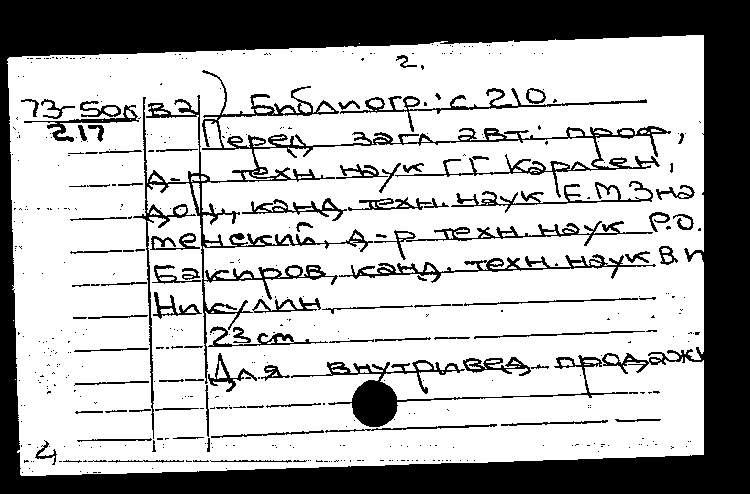 2.
73-50к В2 . Библиогр.: с. 210.
217 Перед загл. авт.: проф.,
д-р техн. наук Г.Г. Карлсен,
доц., канд. техн. наук Е.М. Зна-
менский, д-р техн. наук Р.О.
Бакиров, канд. техн. наук В.П
Никулин.
23 cm.
Для внутривед. продажи